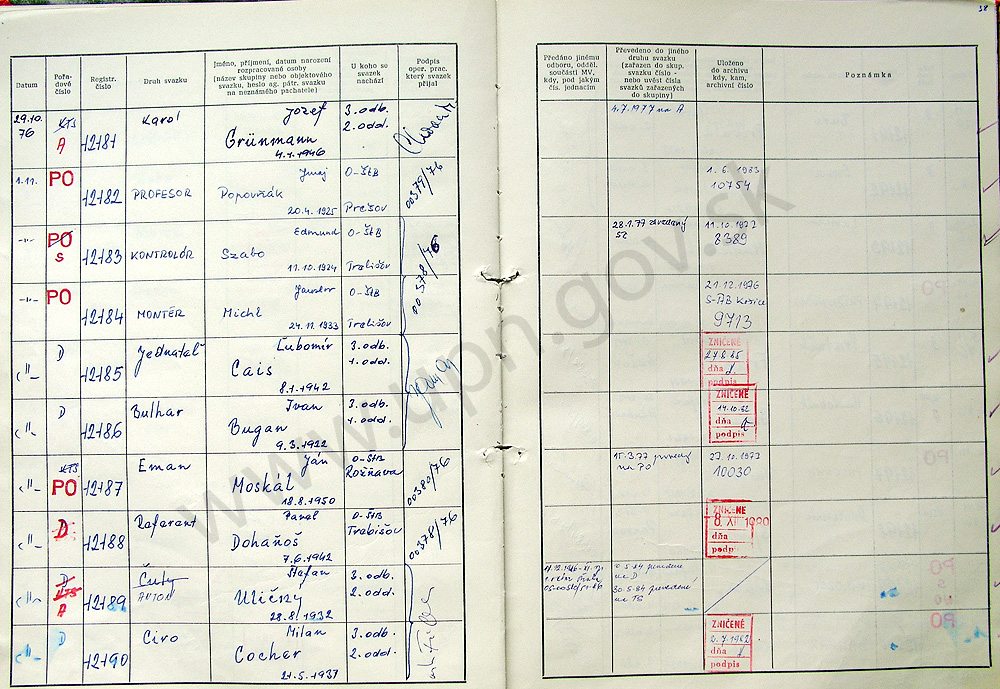 38
Datum
Pořa-
dové
číslo
Registr.
číslo
Druh svazku
Jméno, příjmení, datum narození
rozpracované osoby
(název skupiny nebo objektového
svazku, heslo ag. pátr. svazku
na neznámého pachatele)
U koho se
svazek
nachází
Podpis
oper. prac.
který svazek
přijal
Předáno jinému
odboru, odděl.
součásti MV,
kdy, pod jakým
čís. jednacím
Převedeno do jiného
druhu svazku
(zařazen do skup.
svazku číslo -
nebo uvést čísla
svazků zařazených
do skupiny)
Uloženo
do archivu
kdy, kam,
archivní číslo
Poznámka
29.10.
76
KTS
A
12181
Karol
Jozef
Grünmann
4.1.1946
3. odb.
2. odd.
4.7.1977 na A
1.11.
PO
12182
PROFESOR
Juraj
Popovňák
20.4.1925
O-ŠtB
Prešov
00379/76
1.6.1983
10754
-"-
PO
S
12183
KONTROLÓR
Edmund
Szabo
11.10.1924
O-ŠtB
Trebišov
00378/76
28.1.77
11.10.1977
8389
-"-
PO
12184
MONTÉR
Jaroslav
Michl
24.11.1933
O-ŠtB
Trebišov
21.12.1976
S-ŠtB Košice
9713
-"-
D
12185
Jednatel
Ľubomír
Cais
8.1.1942
3. odb.
1. odd.
ZNIČENÉ
dňa
podpis
-"-
D
12186
Bulhar
Ivan
Bugan
9.3.1922
3. odb.
1. odd.
ZNIČENÉ
14.10.82
dňa
podpis
-"-
KTS
PO
12187
Eman
Ján
Moskál
18.8.1950
O-ŠtB
Rožňava
00380/76
15.3.77
na PO
10030
-"-
D
12188
Referent
Pavel
Dohaňoš
7.6.1942
O-ŠtB
Trebišov
00378/76
ZNIČENÉ
8. XII 1980
dňa
podp
-"-
D
KTS
A
12189
ANTON
Štefan
Uličný
28.8.1932
3. odb.
2. odd.
na D
30.5.84 prevedené
na TS
-"-
D
12190
Ciro
Milan
Cocher
21.5.1937
3. odb.
2. odd.
ZNIČENÉ
2.7.1982
dňa
podpis
www.upn.gov.sk